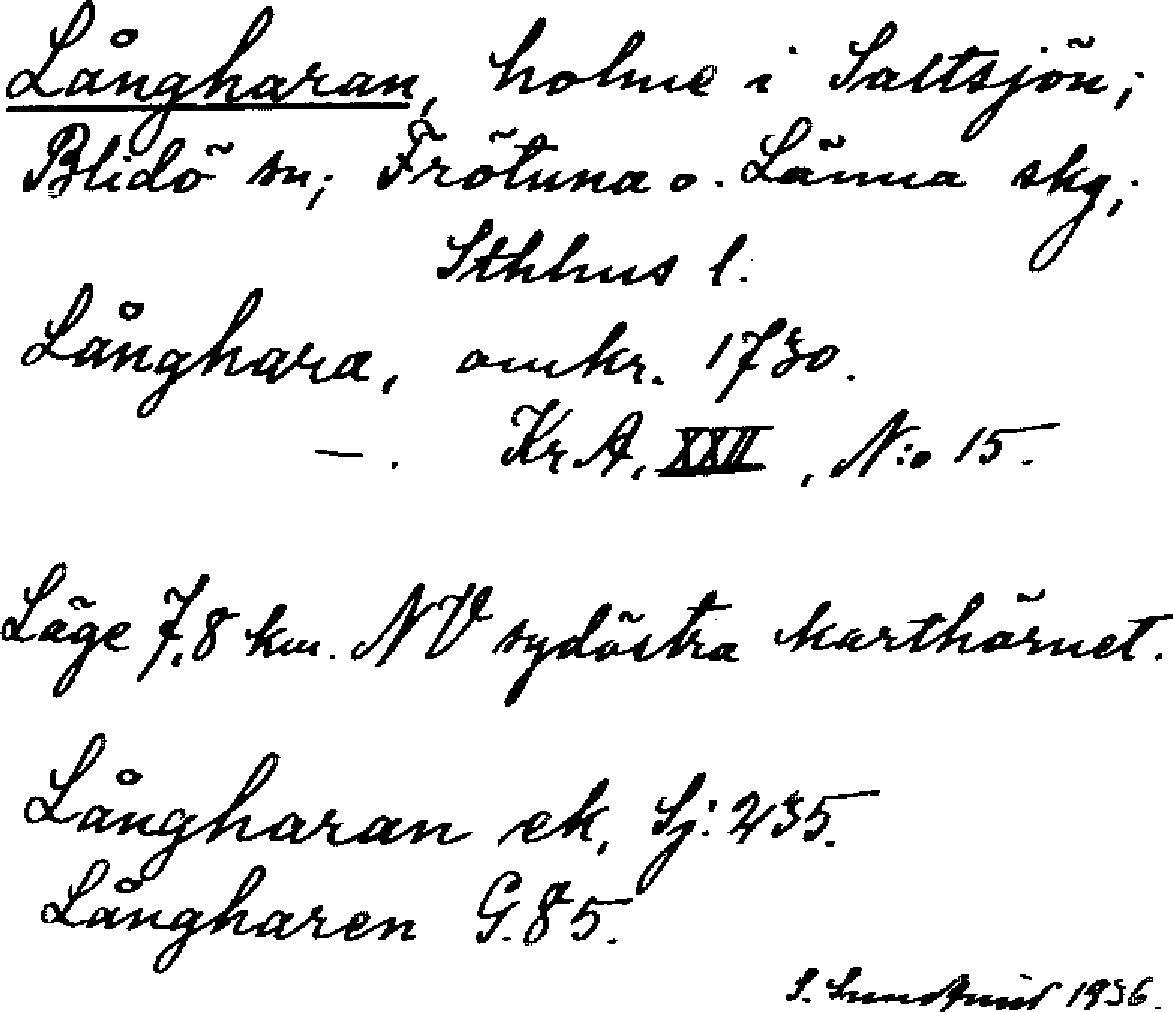 Långharan, holme i Saltsjön;
Blidö sn; Frötuna o. Länna skg;
Sthlms l.
Långhara, omkr. 1730.
—. Kr. A. XXII, N:o 15.
Läge 7,8 km. NV sydöstra karthörnet.
Långharan ek, Sj: 235.
Långharen G. 85.
S. 1936.